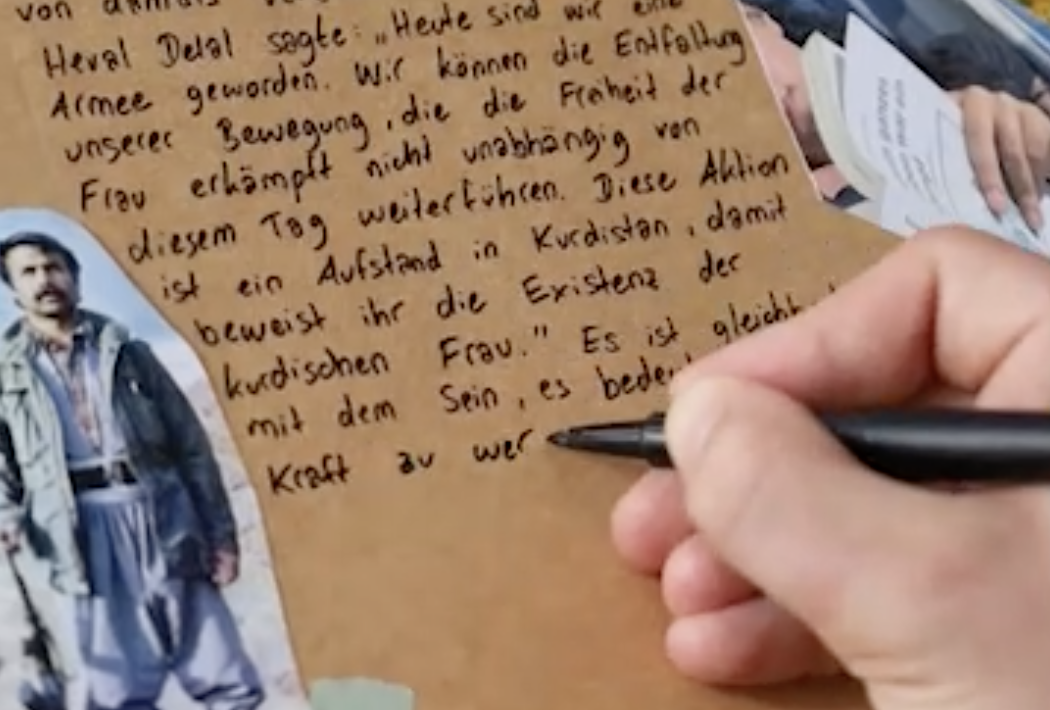 von damals
Heval Delal sagte: „Heute sind wir eine
Armee geworden. Wir können die Entfaltung
unserer Bewegung, die die Freiheit der
Frau erkämpft nicht unabhängig von
diesem Tag weiterführen. Diese Aktion
ist ein Aufstand in Kurdistan, damit
beweist ihr die Existenz der
kurdischen Frau." Es ist
mit dem Sein, es
Kraft zu wer